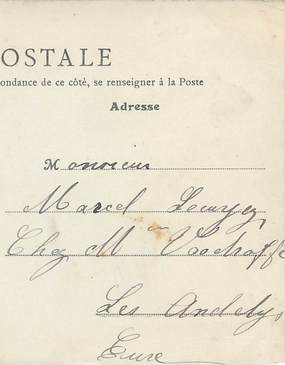 OSTALE
ondance de ce côté, se renseigner à la Poste
Adresse
Monsieur
Marcel
Chez Mr
Les Andelys
Eure